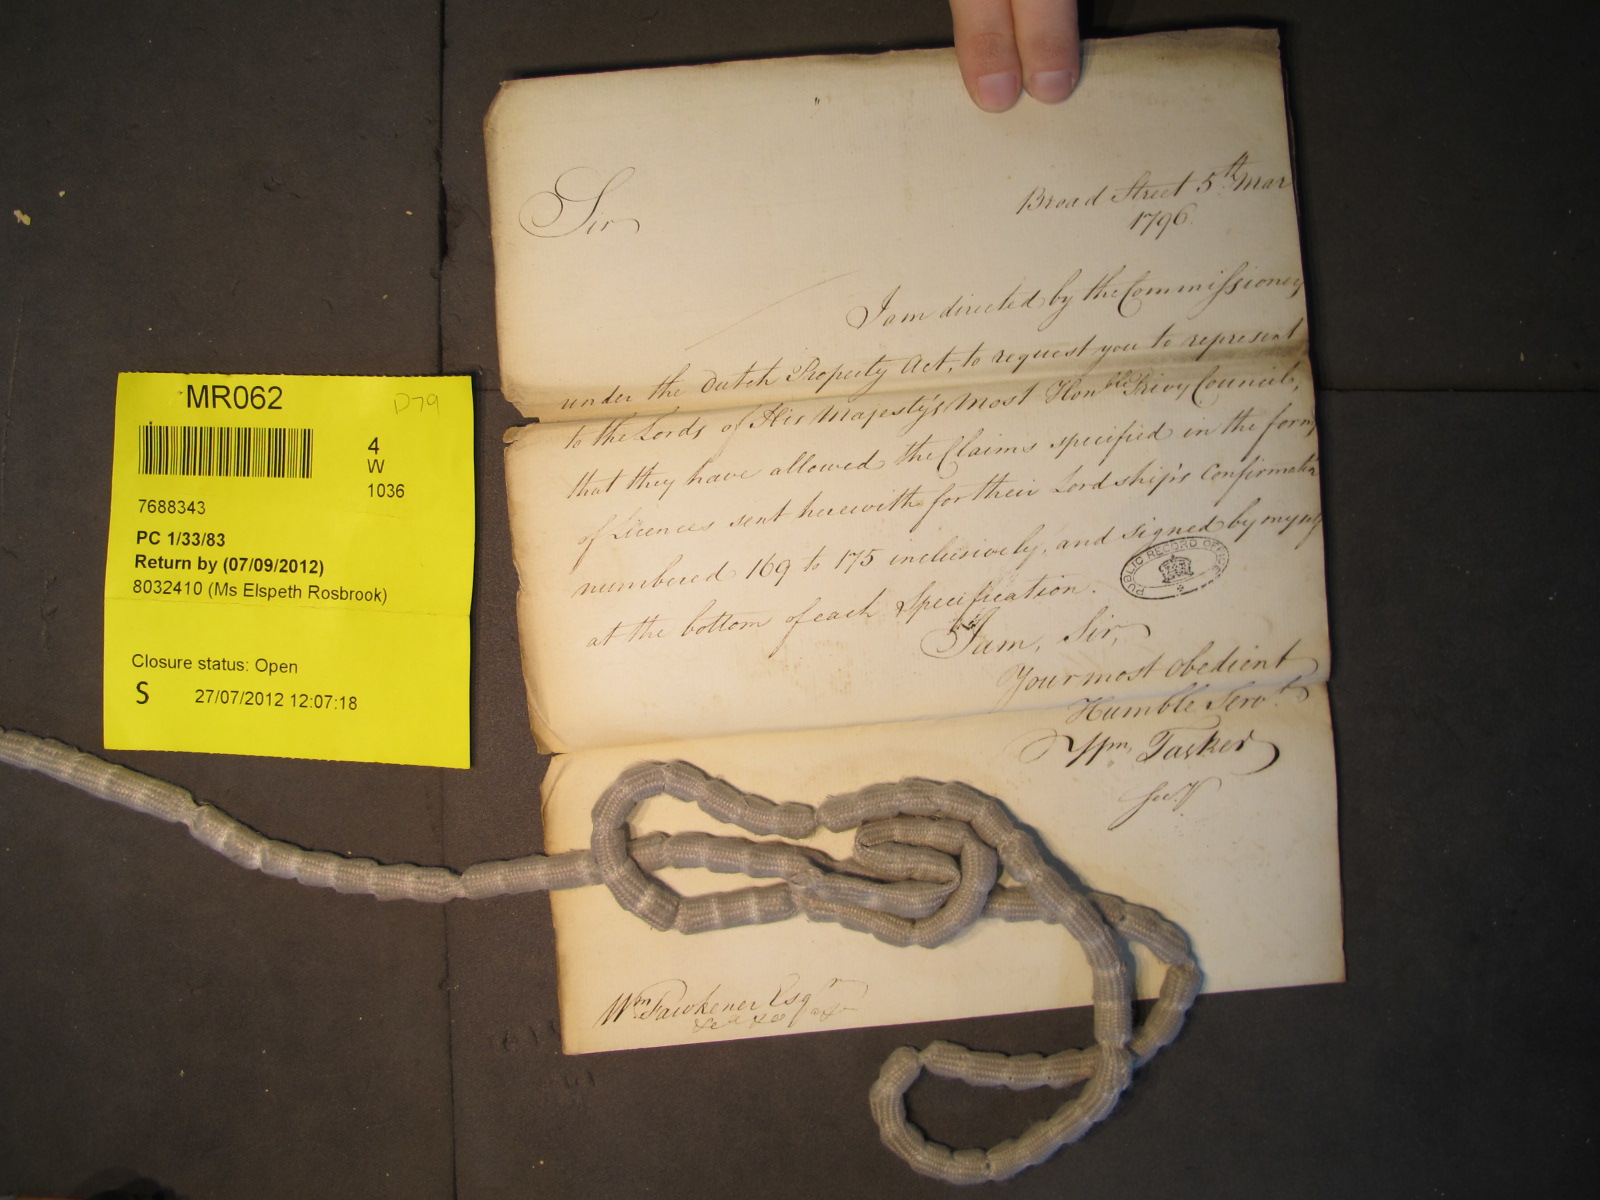 MR062
D79
4
W
1036
7688343
PC 1/33/83
Return by (07/09/2012)
8032410 (Ms Elspeth Rosbrook)
Closure status: Open
S 27/07/2012 12:07:18
Broad Street 5th Mar
1796
Sir
I am directed by the Commissioners
under the Dutch Property Act, to request you to represent
to the Lords of His Majesty's Most Honble Privy Council,
that they have allowed the Claims specified in the form
of Licences sent herewith for their Lordship's Confirmation
numbered 169 to 175 inclusively, and signed by myself
at the bottom of each Specification.
PUBLIC RECORD OFFICE
I am, Sir,
Your most Obedient
Humble Servt
Wm Tasker
Secy
Wm Fawkener Esqr
&c &c &c